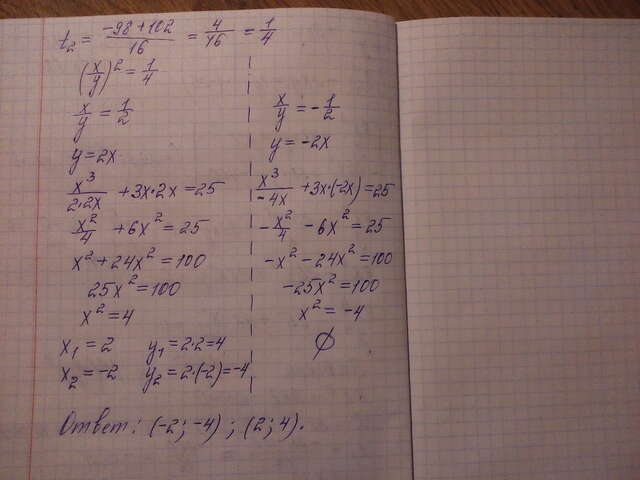 t₂ = (-98+102)/16 = 4/16 = 1/4
(x/y)² = 1/4
x/y = 1/2
y = 2x
x³/(2·2x) + 3x·2x = 25
x²/4 + 6x² = 25
x² + 24x² = 100
25x² = 100
x² = 4
x₁ = 2 y₁ = 2·2 = 4
x₂ = -2 y₂ = 2·(-2) = -4
x/y = -1/2
y = -2x
x³/(-4x) + 3x·(-2x) = 25
-x²/4 - 6x² = 25
-x² - 24x² = 100
-25x² = 100
x² = -4
∅
Ответ: (-2; -4); (2; 4).